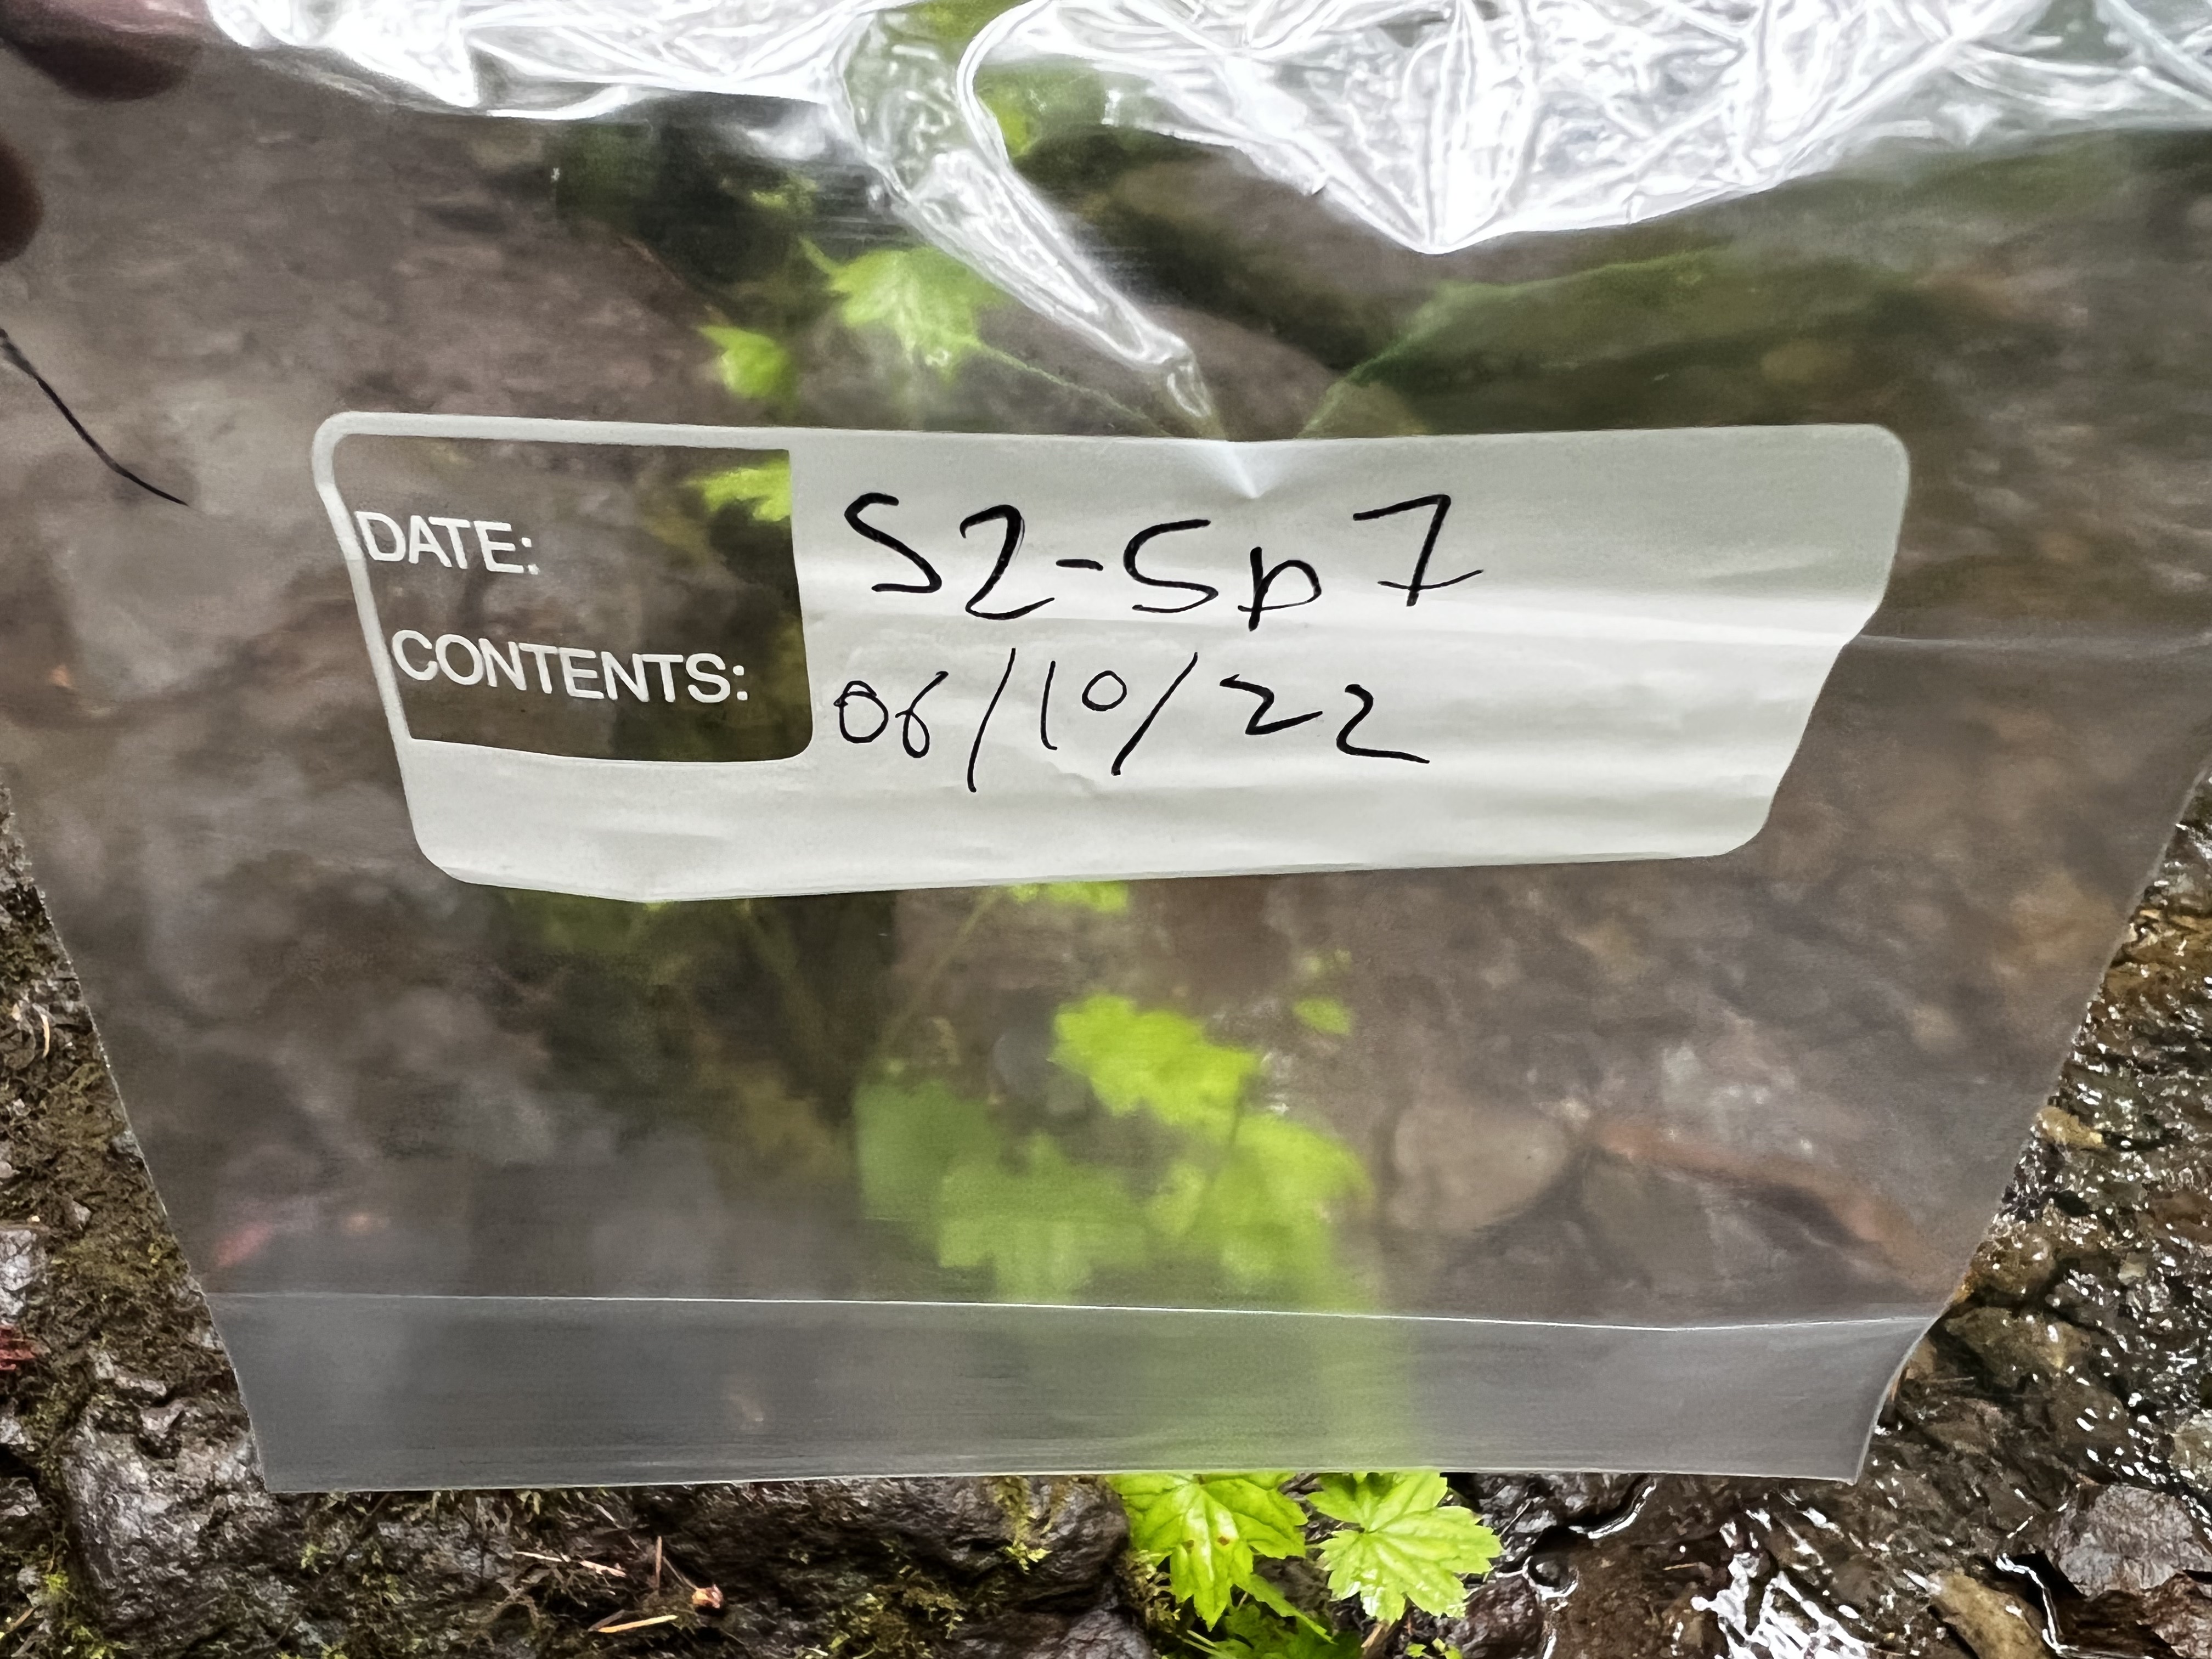 DATE: S2-Sp7
CONTENTS: 06/10/22